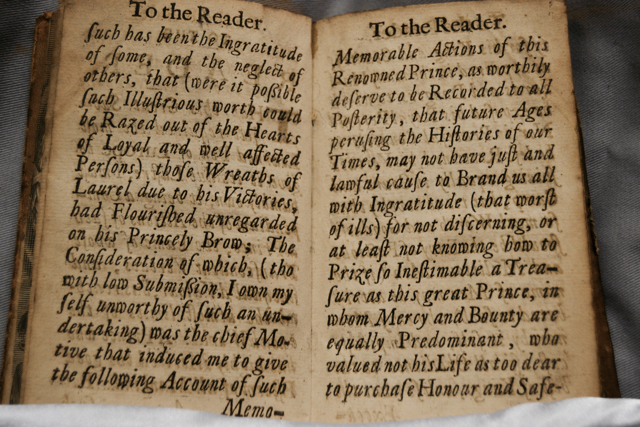 To the Reader.
ſuch has been the Ingratitude
of ſome, and the neglect of
others, that (were it poſſible
ſuch Illuſtrious worth could
be Razed out of the Hearts
of Loyal and well affected
Perſons) thoſe Wreaths of
Laurel due to his Victories,
had Flouriſhed unregarded
on his Princely Brow; The
Conſideration of which, (tho
with low Submiſſion, I own my
ſelf unworthy of ſuch an un-
dertaking) was the chief Mo-
tive that induced me to give
the following Account of ſuch
Memo-
To the Reader.
Memorable Actions of this
Renowned Prince, as worthily
deſerve to be Recorded to all
Poſterity, that future Ages
peruſing the Hiſtories of our
Times, may not have juſt and
lawful cauſe to Brand us all
with Ingratitude (that worſt
of ills) for not diſcerning, or
at leaſt not knowing how to
Prize ſo Ineſtimable a Trea-
ſure as this great Prince, in
whom Mercy and Bounty are
equally Predominant, who
valued not his Life as too dear
to purchaſe Honour and Safe-